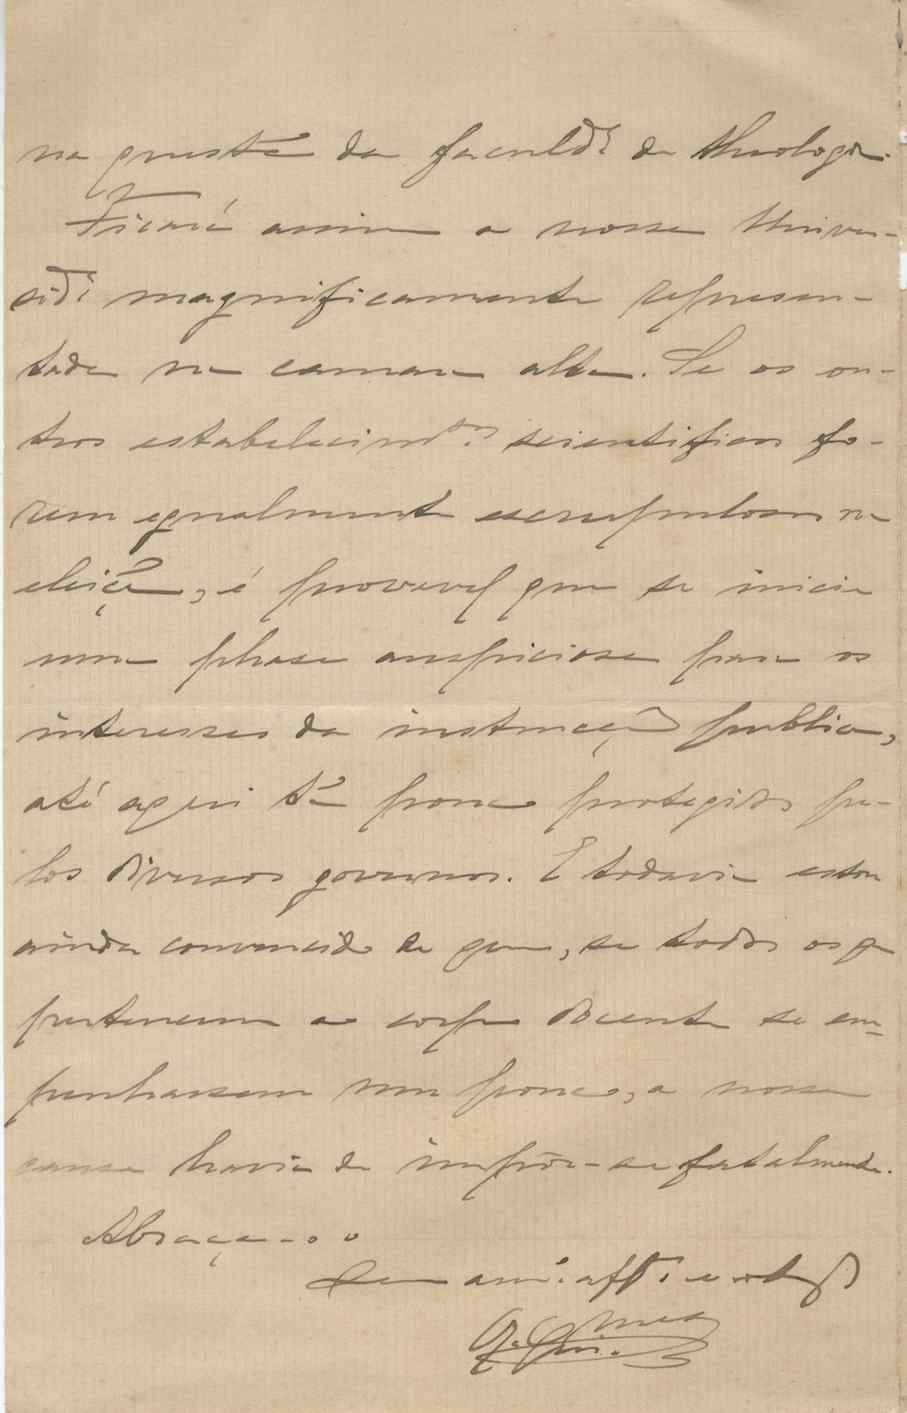 na questã da faculd.e de theologia.
Ficará assim a nossa Univer-
sid.e magnificamente represen-
tada na camara alta. Se os ou-
tros estabelecim.tos scientificos fo-
rem egualmente escrupulosos na
eleiçã, é provavel que se inicie
uma phase auspiciosa para os
interesses da instrucçã publica,
até aqui tã pouco protegidos pe-
los diversos governos. E todavia estou
ainda convencido de que, se todos os q
pertencem ao corpo docente se em-
penhassem um pouco, a nossa
causa havia de impôr-se fatalmente.
Abraça-o o
Seu am.o aff.o e